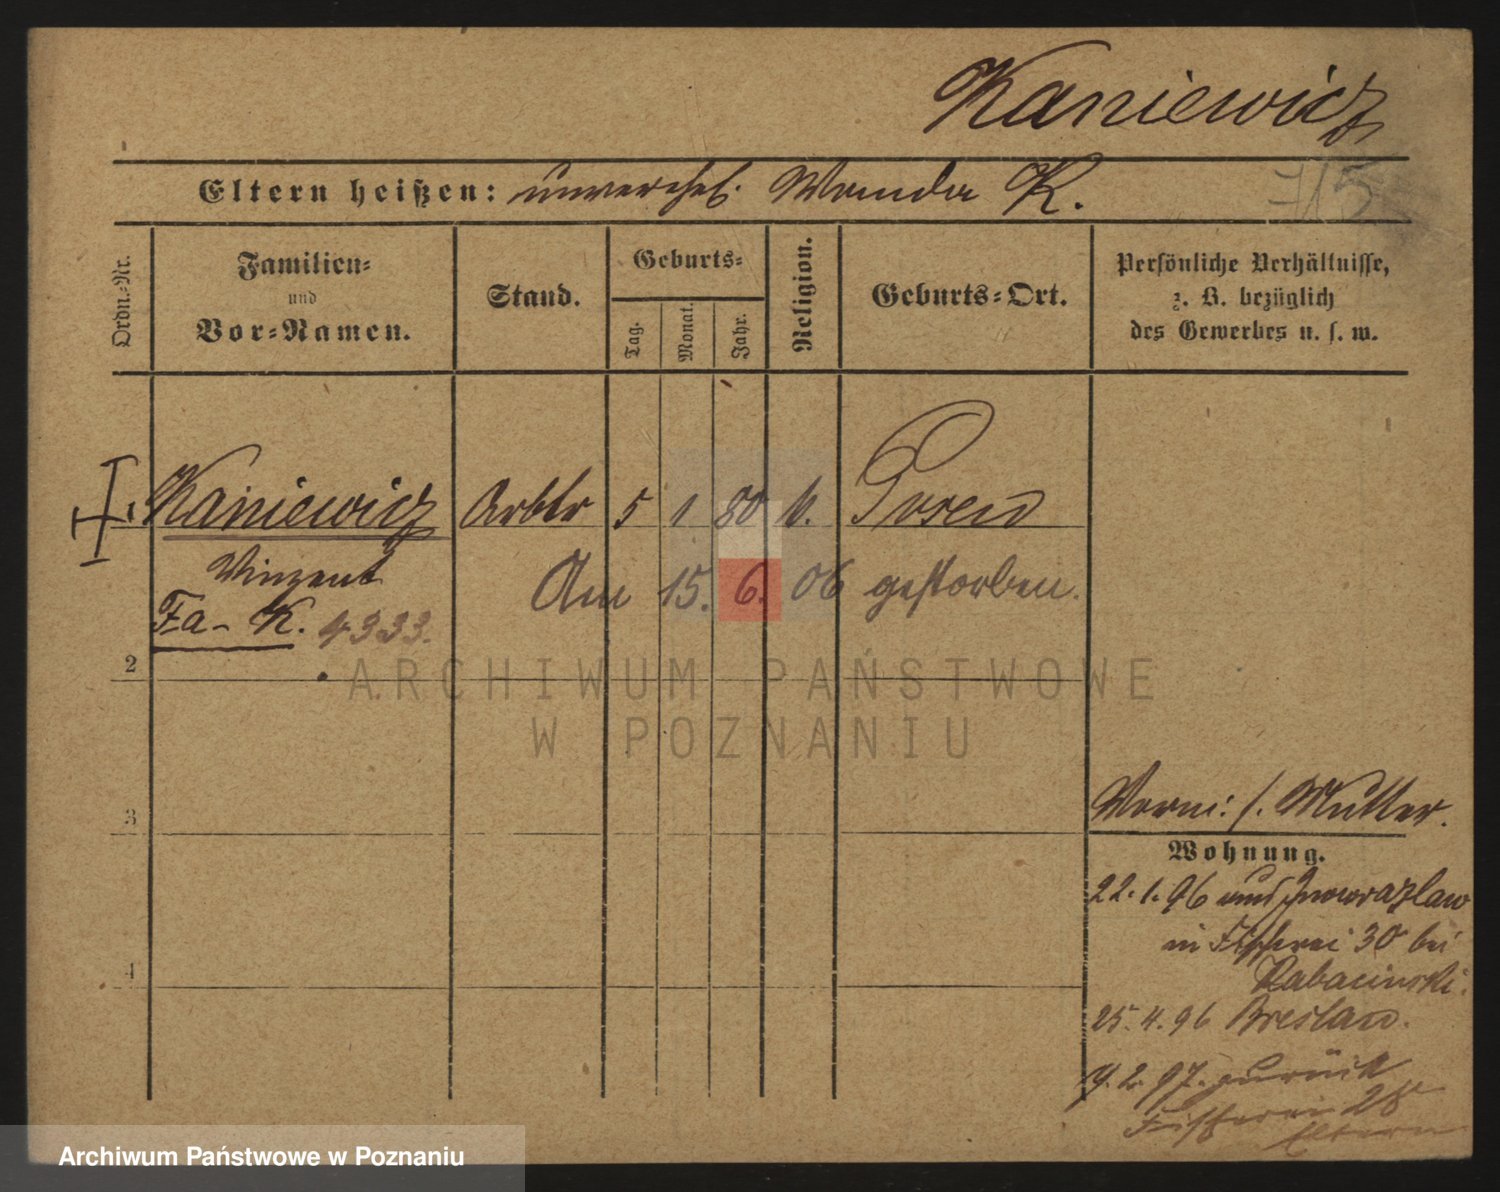 Kaniewicz
Eltern heißen: unverehel. Wanda K.
715
Ordn.-Nr.
Familien-
und
Vor-Namen.
Stand.
Geburts-
Tag.
Monat.
Jahr.
Religion.
Geburts-Ort.
Persönliche Verhältnisse,
z. B. bezüglich
des Gewerbes u. s. w.
1 Kaniewicz Arbtr 5 1 80 k. Posen
Vinzent
Am 15. 6. 06 gestorben.
Fa- K. 4333.
2
ARCHIWUM PAŃSTWOWE
W POZNANIU
3
Vorm: s. Mutter.
Wohnung.
22.1.96 aus Inowrazlaw
in Fischerei 30 bei
Rabacinski.
4
25.4.96 Breslau.
9.2.97. zurück
Fischerei 28
Eltern
Archiwum Państwowe w Poznaniu